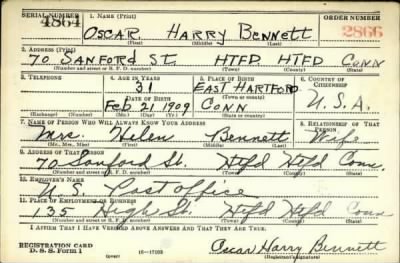 SERIAL NUMBER 1. Name (Print) ORDER NUMBER
4864 OSCAR HARRY BENNETT 2866
(First) (Middle) (Last)
2. Address (Print)
70 SANFORD ST. HTFD HTFD CONN
(Number and street or R. F. D. number) (Town) (County) (State)
3. Telephone 4. Age in Years 5. Place of Birth 6. Country of Citizenship
31 EAST HARTFORD
Date of Birth (Town or county)
Feb 21 1909 CONN U.S.A.
(Exchange) (Number) (Mo.) (Day) (Yr.) (State or country)
7. Name of Person Who Will Always Know Your Address 8. Relationship of That Person
Mrs. Helen Bennett Wife
(Mr., Mrs., Miss) (First) (Middle) (Last)
9. Address of That Person
70 Sanford St. Htfd Htfd Conn.
(Number and street or R. F. D. number) (Town) (County) (State)
10. Employer's Name
U.S. Post office
11. Place of Employment or Business
135 High St. Htfd Htfd Conn
(Number and street or R. F. D. number) (Town) (County) (State)
I Affirm That I Have Verified Above Answers and That They Are True.
REGISTRATION CARD
D. S. S. Form 1 (over) 16—17105 Oscar Harry Bennett
(Registrant's signature)